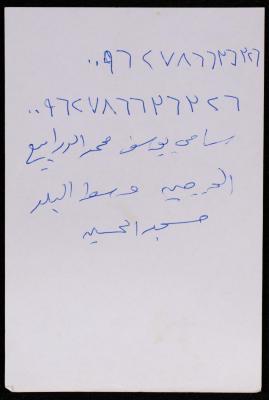 ٠٠٩٦٢٧٨٦٦٣٦٣٢٦
٠٠٩٦٢٧٨٦٦٣٦٣٢٦
سامي يوسف محمد الدرابيع
وسط البلد
مسجد الحسين